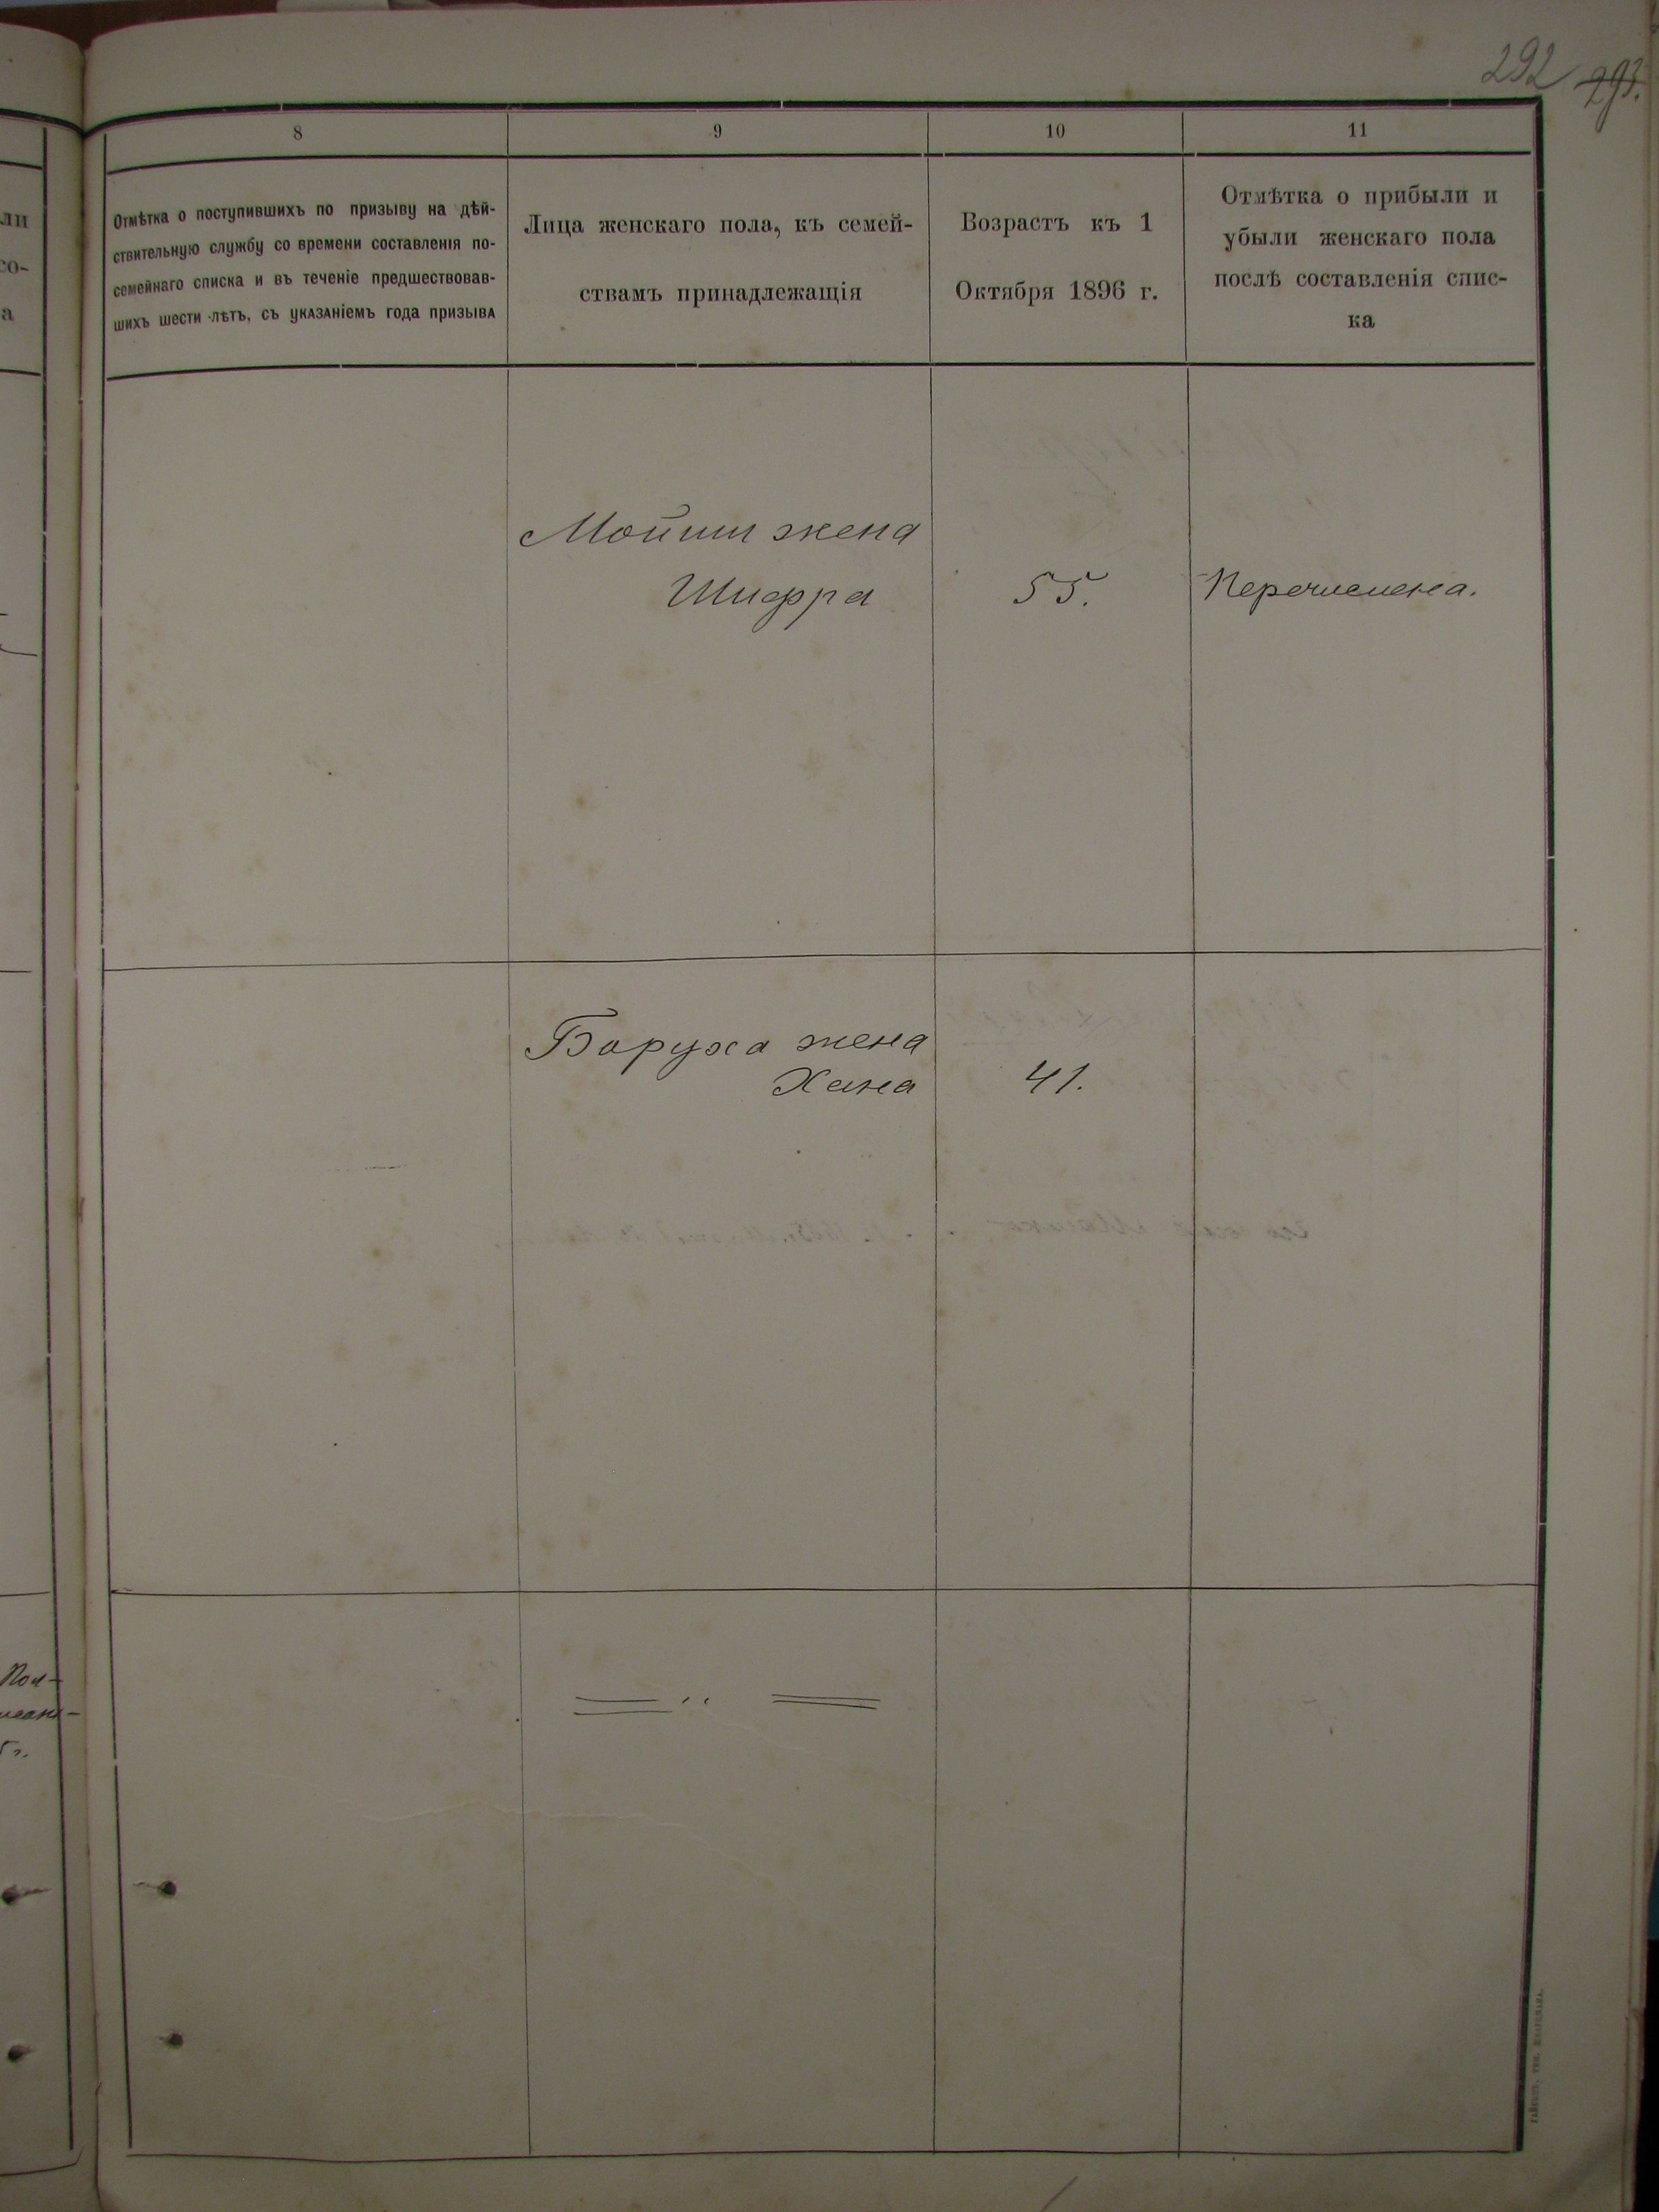 292 293.
8
9
10
11
Отмѣтка о поступившихъ по призыву на дѣй-
ствительную службу со времени составленія по-
семейнаго списка и въ теченіе предшествовав-
шихъ шести лѣтъ, съ указаніемъ года призыва
Лица женскаго пола, къ семей-
ствамъ принадлежащія
Возрастъ къ 1
Октября 1896 г.
Отмѣтка о прибыли и
убыли женскаго пола
послѣ составленія спис-
ка
ли
со-
а
Мойши жена
Шифра
55.
Перечислена.
Боруха жена
Хана
41.